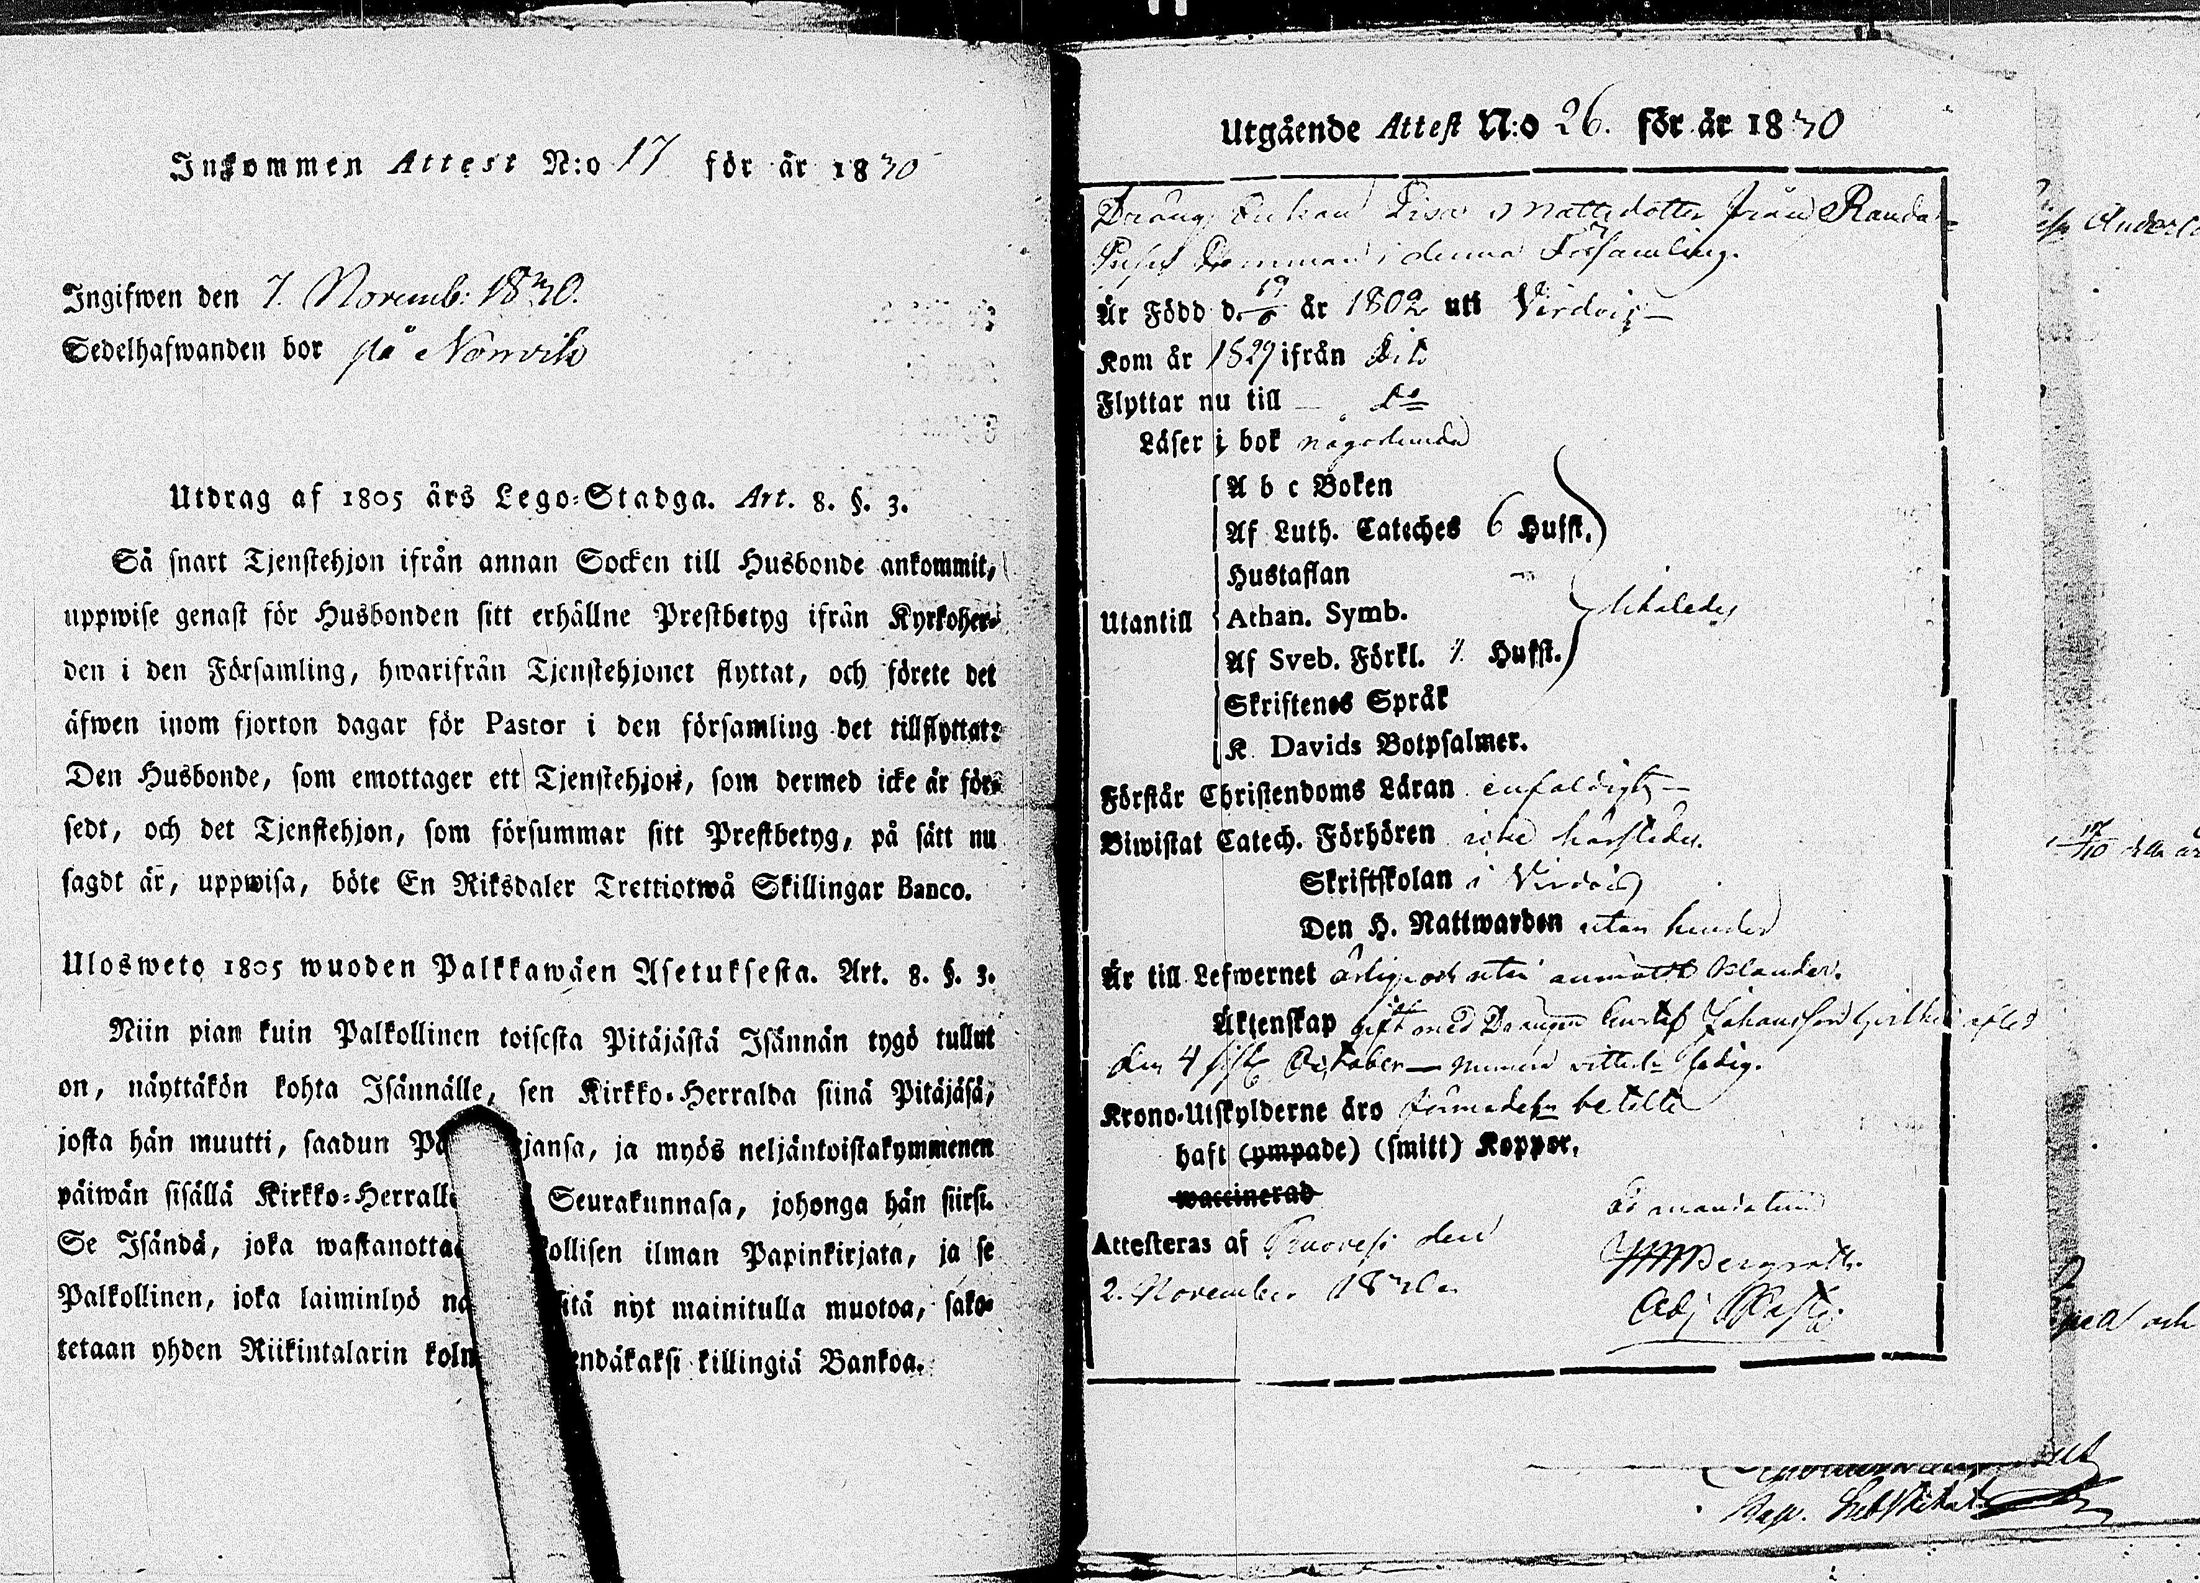 Inkommen Attest N:o 17 för år 1830
Ingifwen den 7. Novemb: 1830.
Sedelhafwanden bor på
Utdrag af 1805 års Lego-Stadga. Art. 8. §. 3.
Så snart Tjenstehjon ifrån annan Socken till Husbonde ankommit,
uppwise genast för Husbonden sitt erhållne Prestbetyg ifrån Kyrkoher-
den i den Församling, hwarifrån Tjenstehjonet flyttat, och förete det
äfwen inom fjorton dagar för Pastor i den församling det tillflyttat:
Den Husbonde, som emottager ett Tjenstehjon, som dermed icke är för-
sedt, och det Tjenstehjon, som försummar sitt Prestbetyg, på sätt nu
sagdt är, uppwisa, böte En Riksdaler Trettiotwå Skillingar Banco.
Ulosweto 1805 wuoden Palkkawäen Asetuksesta. Art. 8. §. 3.
Niin pian kuin Palkollinen toisesta Pitäjästä Isännän tygö tullut
on, näyttäkön kohta Isännälle, sen Kirkko-Herralda siinä Pitäjäsä,
josta hän muutti, saadun jansa, ja myös neljäntoistakymmenen
päiwän sisällä Kirkko-Herralle Seurakunnasa, johonga hän siirsi.
Se Isändä, joka wastanottaa kollisen ilman Papinkirjata, ja se
Palkollinen, joka laiminlyö sitä nyt mainitulla muotoa, sako-
tetaan yhden Riikintalarin kolm endäkaksi killingiä Bankoa.
Utgående Attest N:o 26. för år 1830
Dräng Enkan Lisa Mattsdotter från
i denna Församling.
Är Född d. 19 år 1802 uti Virdois
Kom år 1829 ifrån Dito
Flyttar nu till Do
Läser i bok någorlunda
A b c Boken
Af Luth. Cateches 6 Hufst.
Hustaflan
Utantill Athan. Symb.
Af Sveb. Förkl. 7. Hufst.
Skriftenes Språk
K. Davids Botpsalmer.
Förstår Christendoms Läran enfaldigt
Biwistat Catech. Förhören icke härstädes.
Skriftskolan i Virdois
Den H. Nattwarden utan hinder
Är till Lefwernet ärlig och utan anmält klander.
Äktenskap gift med Drängen Gustaf Johansson hvilken afled
den 4 sistl. October numera ledig.
Krono-Utskylderne äro förmodeln betalte
haft (ympade) (smitt) Koppor.
waccinerad
Attesteras af Ruovesi den
2. November 1830
Ad mandatum
Bergroth.
Adj